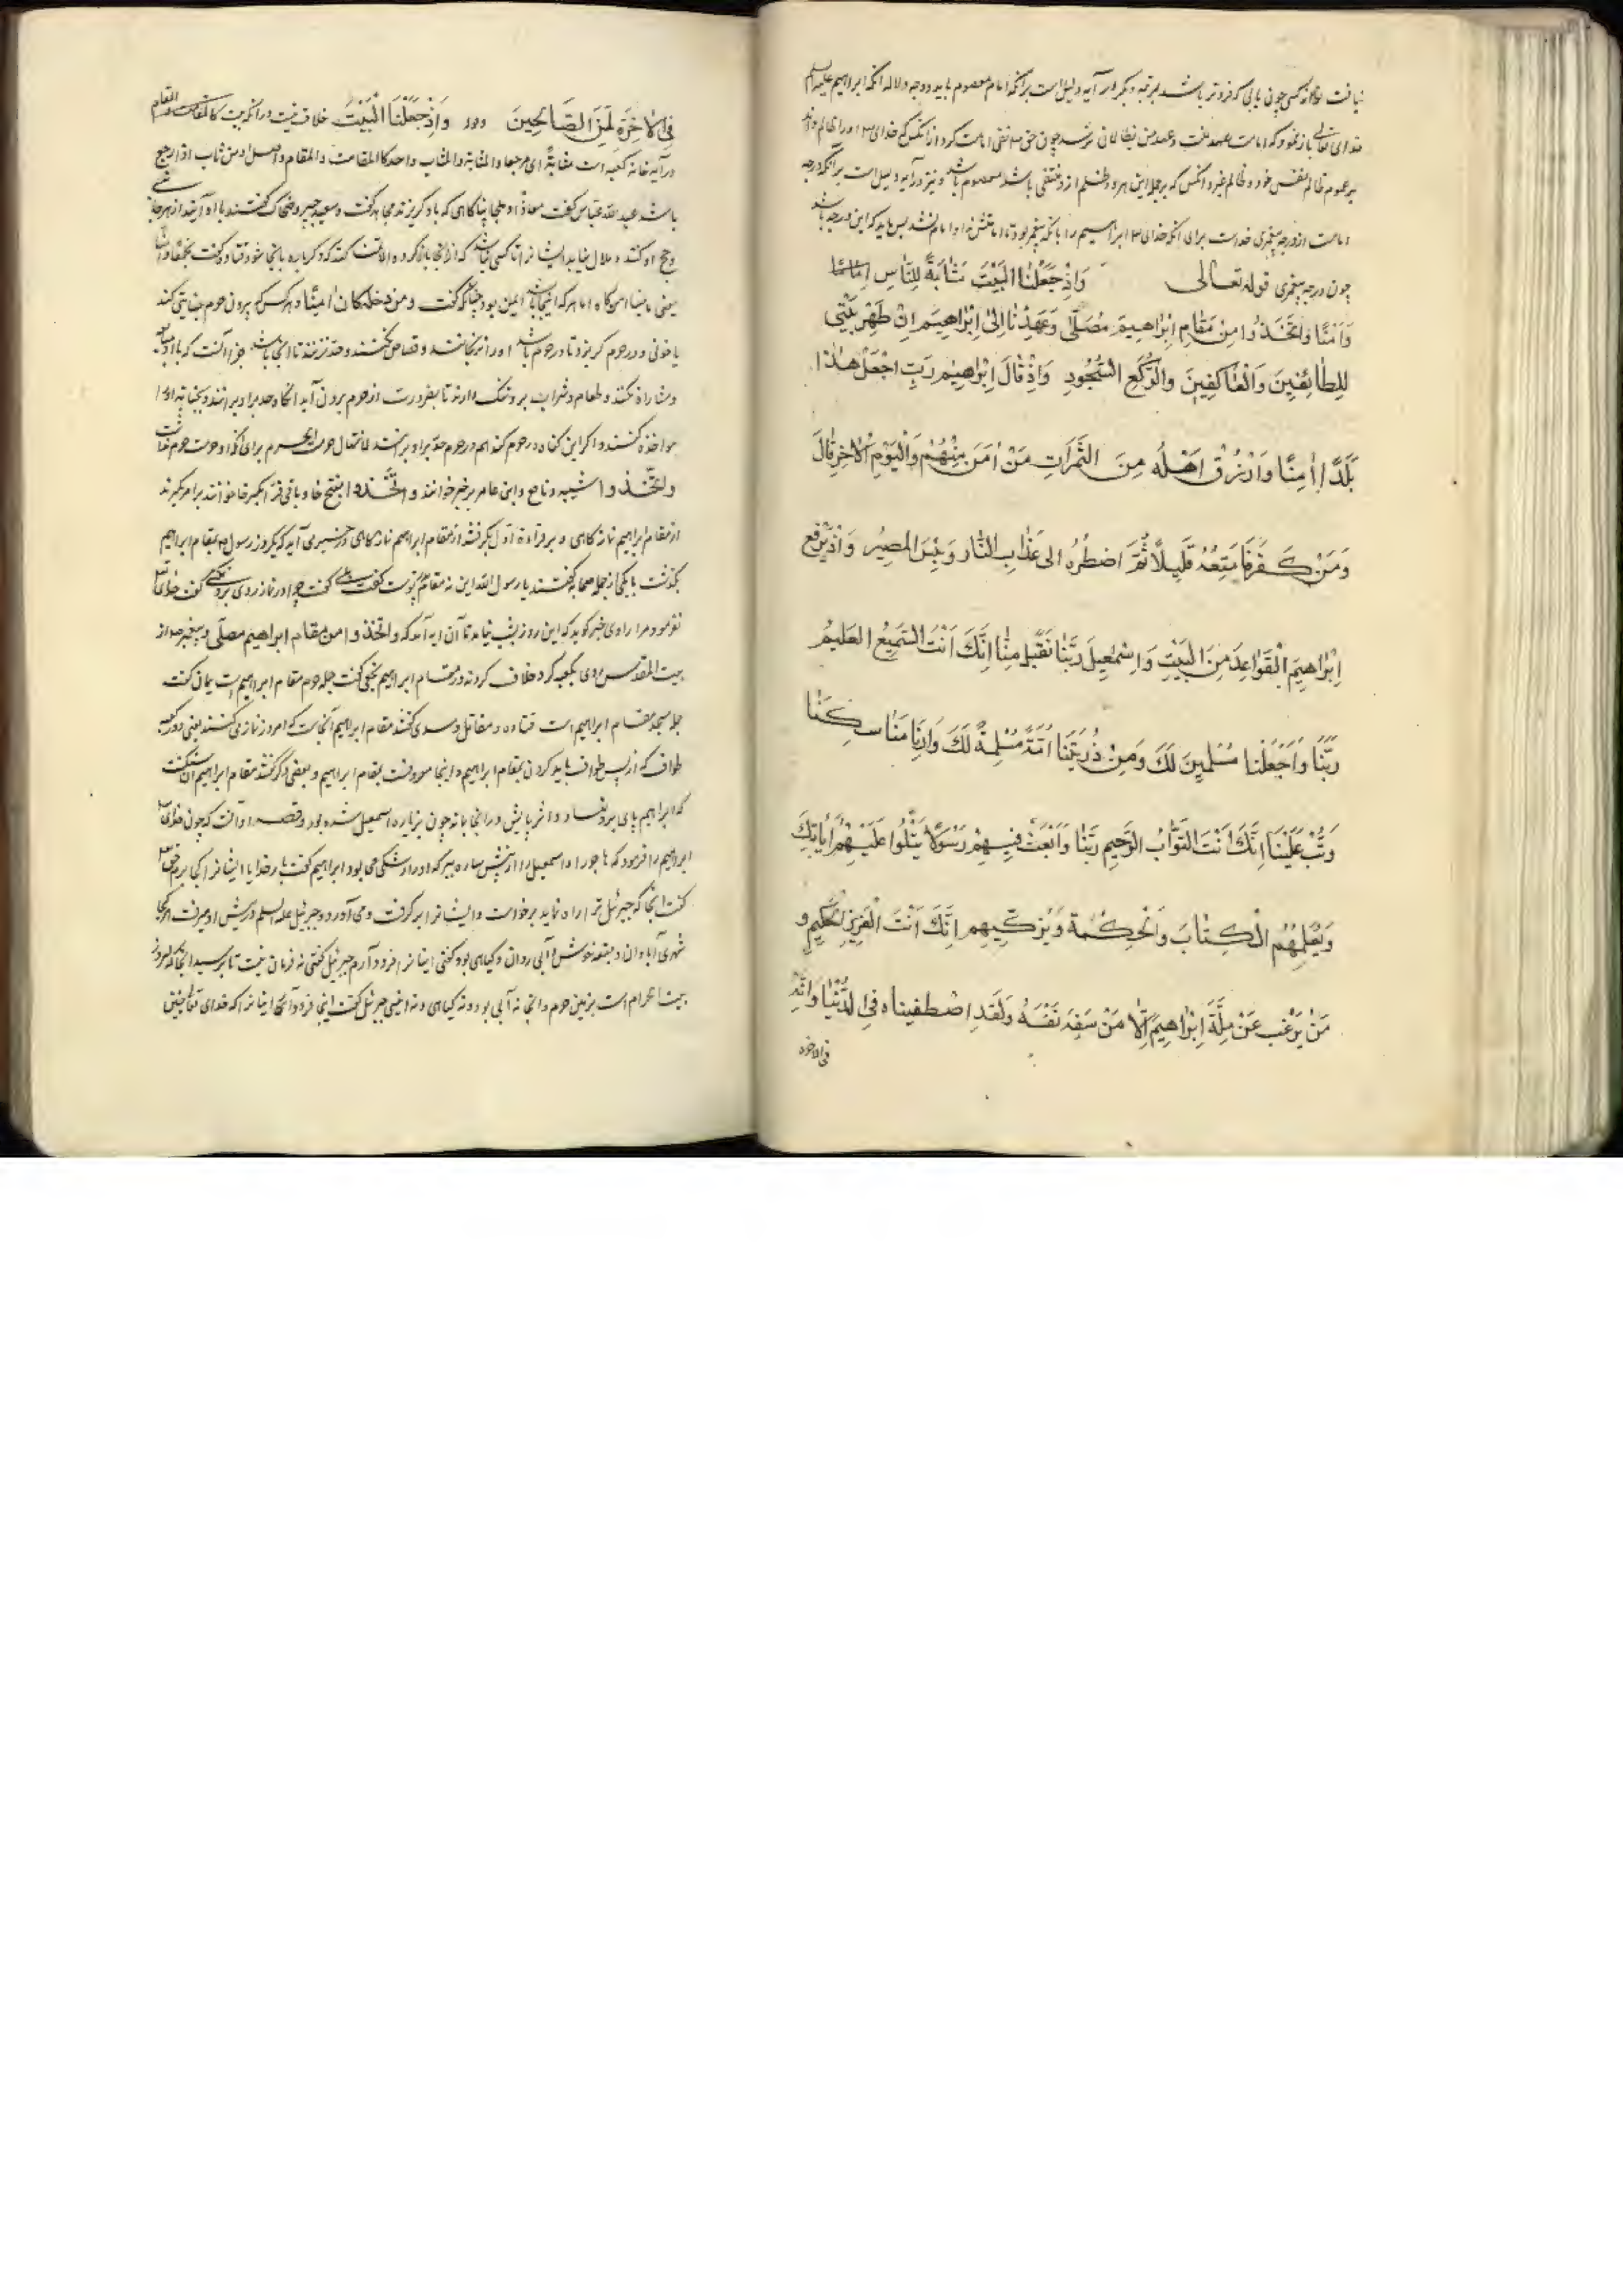 نیافت لولاانه کسی چون یابی که فروتر باشد بمرتبه و دیگر در آیه دلیل است برآنکه امام معصوم باید و وجه دلاله آنکه ابراهیم علیه السلم
خدای تعالی باز نمود که امامت بعهد منست و عهد من بظالمان نرسد چون حق تعالی نفی امامت کرد از آنکس که خدای تعالی او را ظالم داند
بر عموم ظالم نفس خود و ظالم غیر و آنکس که بر جمله این هر دو ظلم ازو منتفی باشد معصوم باشد و نیز در آیه دلیل است برآنکه درجه
امامت از درجه پیغمبری جداست برای آنکه خدای تعالی ابراهیم را بآنکه پیغمبر بود تا امامتش نداد امام نشد پس باید که این درجه باشد
چون درجه پیغمبری قوله تعالی وَاِذْ جَعَلْنَا الْبَیْتَ مَثَابَةً لِلنَّاسِ
وَاَمْنًا وَاتَّخَذُوا مِنْ مَقَامِ اِبْرَاهِیمَ مُصَلّی وَعَهِدْنَا اِلَی اِبْرَاهِیمَ اِنْ طَهِّرْ بَیْتِی
لِلطَّائِفِینَ وَالْعَاکِفِینَ وَالرُّکَّعِ السُّجُودِ وَاِذْ قَالَ اِبْرَاهِیمُ رَبِّ اجْعَلْ هٰذَا
بَلَدًا اٰمِنًا وَارْزُقْ اَهْلَهُ مِنَ الثَّمَرَاتِ مَنْ اٰمَنَ مِنْهُمْ وَالْیَوْمِ الْاٰخِرِ قَالَ
وَمَنْ کَفَرَ فَاُمَتِّعُهُ قَلِیلًا ثُمَّ اَضْطَرُّهُ اِلی عَذَابِ النَّارِ وَبِئْسَ الْمَصِیرُ وَاِذْ یَرْفَعُ
اِبْرَاهِیمُ الْقَوَاعِدَ مِنَ الْبَیْتِ وَاِسْمٰعِیلُ رَبَّنَا تَقَبَّلْ مِنَّا اِنَّکَ اَنْتَ السَّمِیعُ الْعَلِیمُ
رَبَّنَا وَاجْعَلْنَا مُسْلِمِینَ لَکَ وَمِنْ ذُرِّیَّتِنَا اُمَّةً مُسْلِمَةً لَکَ وَاَرِنَا مَنَاسِکَنَا
وَتُبْ عَلَیْنَا اِنَّکَ اَنْتَ التَّوَّابُ الرَّحِیمُ رَبَّنَا وَابْعَثْ فِیهِمْ رَسُولًا یَتْلُوا عَلَیْهِمْ اٰیَاتِکَ
وَیُعَلِّمُهُمُ الْکِتَابَ وَالْحِکْمَةَ وَیُزَکِّیهِمْ اِنَّکَ اَنْتَ الْعَزِیزُ الْحَکِیمُ و
مَنْ یَرْغَبُ عَنْ مِلَّةِ اِبْرَاهِیمَ اِلَّا مَنْ سَفِهَ نَفْسَهُ وَلَقَدِ اصْطَفَیْنَاهُ فِی الدُّنْیَا وَاِنَّهُ
فی الاخره
فِی الْاٰخِرَةِ لَمِنَ الصَّالِحِینَ وَاِذْ جَعَلْنَا الْبَیْتَ خلاف نیست در آنکه بیت
در آیه خانه کعبه است مثابةً ای مرجعا والمثابة والمثاب واحد کالمقامة والمقام و اصل او من ثاب اذا رجع
باشد عبد الله عباس گفت معاذًا و ملجأ پناگاهی که با او گریزند مجاهد گفت و سعید جبیر و ضحاک گفتند با او آیند از هر جا
و حج او کنند و ملال نیاید ایشان را تا کسی نباشد که از آنجا بازگردد والا تمنا کند که دگرباره بآنجا شود قتاده گفت
یعنی مأمنا امن گاه اما هر که اینجا باشد ایمن بود چنانکه گفت ومن دخله کان اٰمنًا و هر کس که بیرون حرم جنایتی کند
یا خونی و در حرم گریزد تا در حرم باشد او را نرنجانند و قصاص نکنند و حد نزنند تا آنجا باشد جز آنست که با او
و مشاراة نکنند و طعام و شراب برو تنگ دارند تا بضرورت از حرم برون آید آنگاه حد براو برانند و بجنایت او را
مواخذه کنند و اگر این گناه در حرم کند هم در حرم حد براو برانند برای آنکه او حرمت حرم
واتّخذوا شیبه و نافع و ابن عامر بر خبر خوانند و اتّخذوا بفتح خا و باقی قرا بکسر خا خوانند بر امر گیرند
از مقام ابراهیم نماز گاهی و بر قراءة اول بگرفتند از مقام ابراهیم نماز گاهی در خبر می آید که یکروز رسول بمقام ابراهیم
بگذشت با یکی از جمله صحابه گفتند یا رسول الله این نه مقام پدر تست گفت بلی گفت چرا در نماز روی برو نکنی گفت خدای تعالی
نفرمود مرا راوی خبر گوید که این روز بشب نیامد تا آن آیه آمد که واتخذوا من مقام ابراهیم مصلّی و پیغمبر از
بیت المقدس روی بکعبه کرد و خلاف کردند در مقام ابراهیم نخعی گفت جمله حرم مقام ابراهیم است یمان گفت
جمله مسجد مقام ابراهیم است قتاده و مقاتل و سدی گفتند مقام ابراهیم آنجاست که امروز نماز می کنند یعنی دو رکعت
طواف که از پس طواف باید کردن بمقام ابراهیم و اینجا معروفست بمقام ابراهیم و بعضی دگر گفتند مقام ابراهیم آن سنگست
که ابراهیم پای برو نهاد و اثر پایش در آنجا بماند چون بزیاره اسمعیل شده بود و قصه او آنست که چون خدای تعالی
ابراهیم را فرمود که هاجر را و اسمعیل را از پیش ساره ببر که او را رشکی می بود ابراهیم گفت بار خدایا ایشان را کجا برم
گفت آنجا که جبرئیل ترا راه نماید برخواست و ایشان را برگرفت و می آورد و جبرئیل علیه السلم در پیش او میرفت هر کجا
شهری آبادان و بقعه خوش و آبی روان و گیاهی بود گفتی اینان را فرود آرم جبرئیل گفتی نه فرمان نیست تا برسید آنجا که امروز
بیت الحرام است بزمین حرم و آنجا نه آبی بود و نه گیاهی و نه انیسی جبرئیل گفت اینجا فرود آر اینان را که خدای تعالی چنین